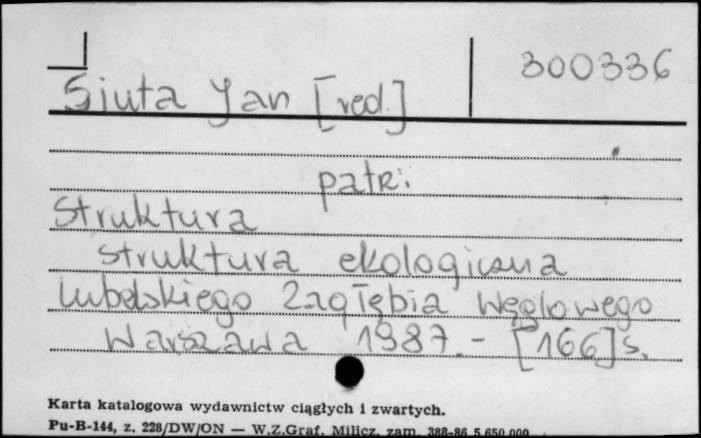 300336
Siuta Jan [red.]
patr:
Struktura
struktura ekologiczna
Lubelskiego Zagłębia Węglowego
Warszawa 1987.- [166]s.
Karta katalogowa wydawnictw ciągłych i zwartych.
Pu-B-144, z. 228/DW/ON — W.Z.Graf. Milicz, zam. 388-86 5.650.000